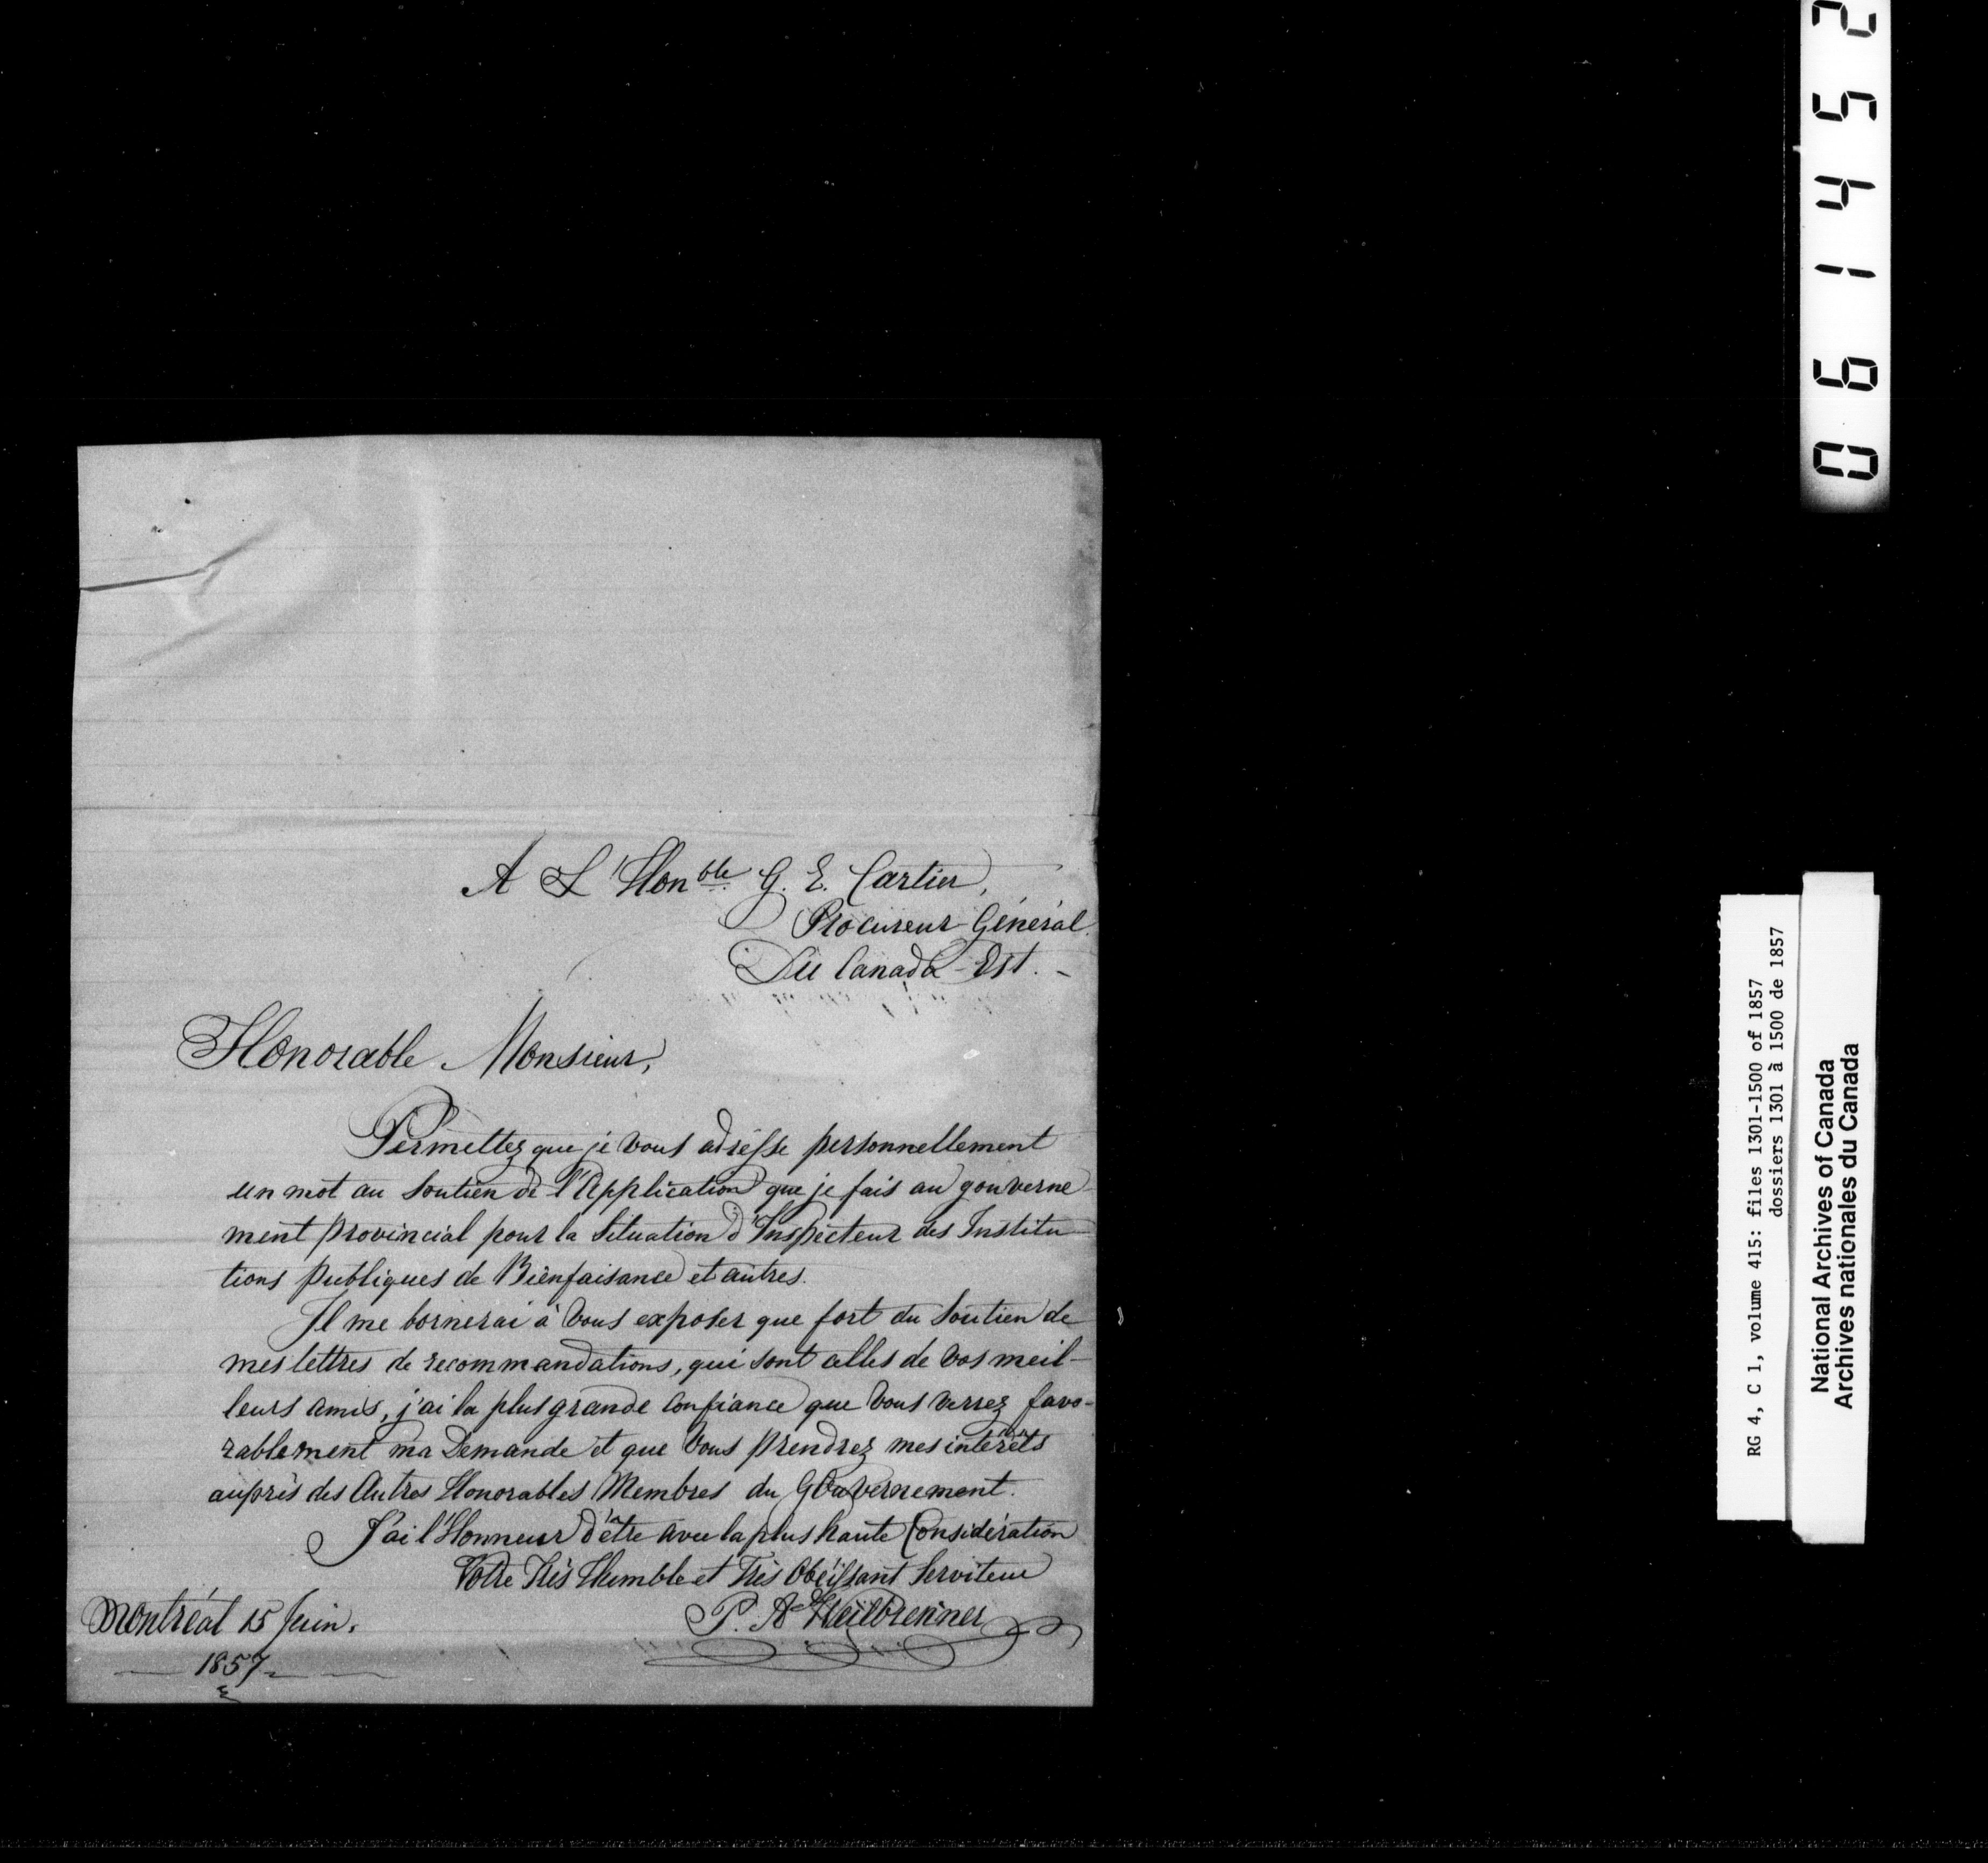 A L'Hon^ble G. E. Cartier,
Procureur-Général
Du Canada-Est. -
Honorable Monsieur,
Permettez que je vous adresse personnellement
un mot au Soutien de l'Application que je fais au gouverne-
ment provincial pour la Situation d'Inspecteur des Institu-
tions publiques de Bienfaisance et autres.
Il me bornerai à Vous exposer que fort du Soutien de
mes lettres de recommandations, qui sont celles de Vos meil-
leurs amis, j'ai la plus grande Confiance que Vous verrez favo-
rablement ma Demande et que Vous prendrez mes intérêts
auprès des Autres Honorables Membres du Gouvernement.
J'ai l'Honneur d'être avec la plus haute Considération
Votre Très Humble et Très Obéissant Serviteur
P. A. Heilbrenner
Montréal 15 Juin.
1857
0 6 1 4 5 2
RG 4, C 1, volume 415: files 1301-1500 of 1857
dossiers 1301 à 1500 de 1857
National Archives of Canada
Archives nationales du Canada